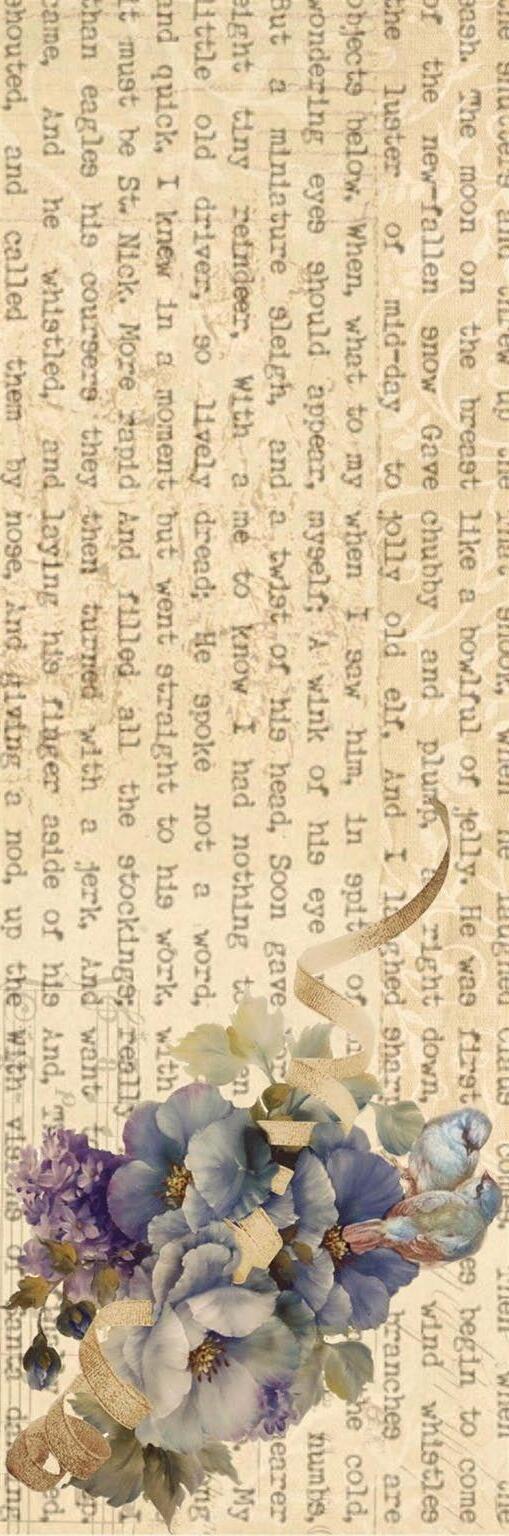 the shutters and threw up the That shook, when he laughed when the
sash. The moon on the breast like a bowlful of jelly. He was first begin to come
of the new-fallen snow Gave chubby and plump, a right down, wind whistles
the luster of mid-day to jolly old elf, And I laughed branches are
objects below, When, what to my when I saw him, in spite of the cold,
wondering eyes should appear, myself; A wink of his eye numbs,
But a miniature sleigh, and a twist of his head, Soon gave
eight tiny reindeer, With a me to know I had nothing to My
little old driver, so lively dread; He spoke not a word,
and quick, I knew in a moment but went straight to his work, with
it must be St. Nick. More rapid And filled all the stockings; really I
than eagles his coursers they then turned with a jerk. And want
came, And he whistled, and laying his finger aside of his And,
shouted, and called them by nose, And giving a nod, up the with visions of